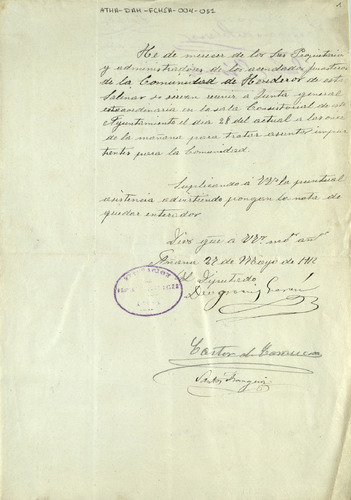 ATHA-DAH-FCHSA-004-051
He de merecer de los Sres Propietarios
y administradores de los
de la Comunidad de Herederos de
Salinas se sirvan reunir a Junta general
extraordinaria en la sala Consistorial de este
Ayuntamiento el dia 28 del actual a las once
de la mañana para tratar asuntos impor
tantes para la Comunidad.
Suplicando á VV. la puntual
asistencia advirtiendo pongan la nota de
quedar enterados
Dios gue a VV. ms. as.
Añana 27 de Mayo de 1912
El Diputado
Castor